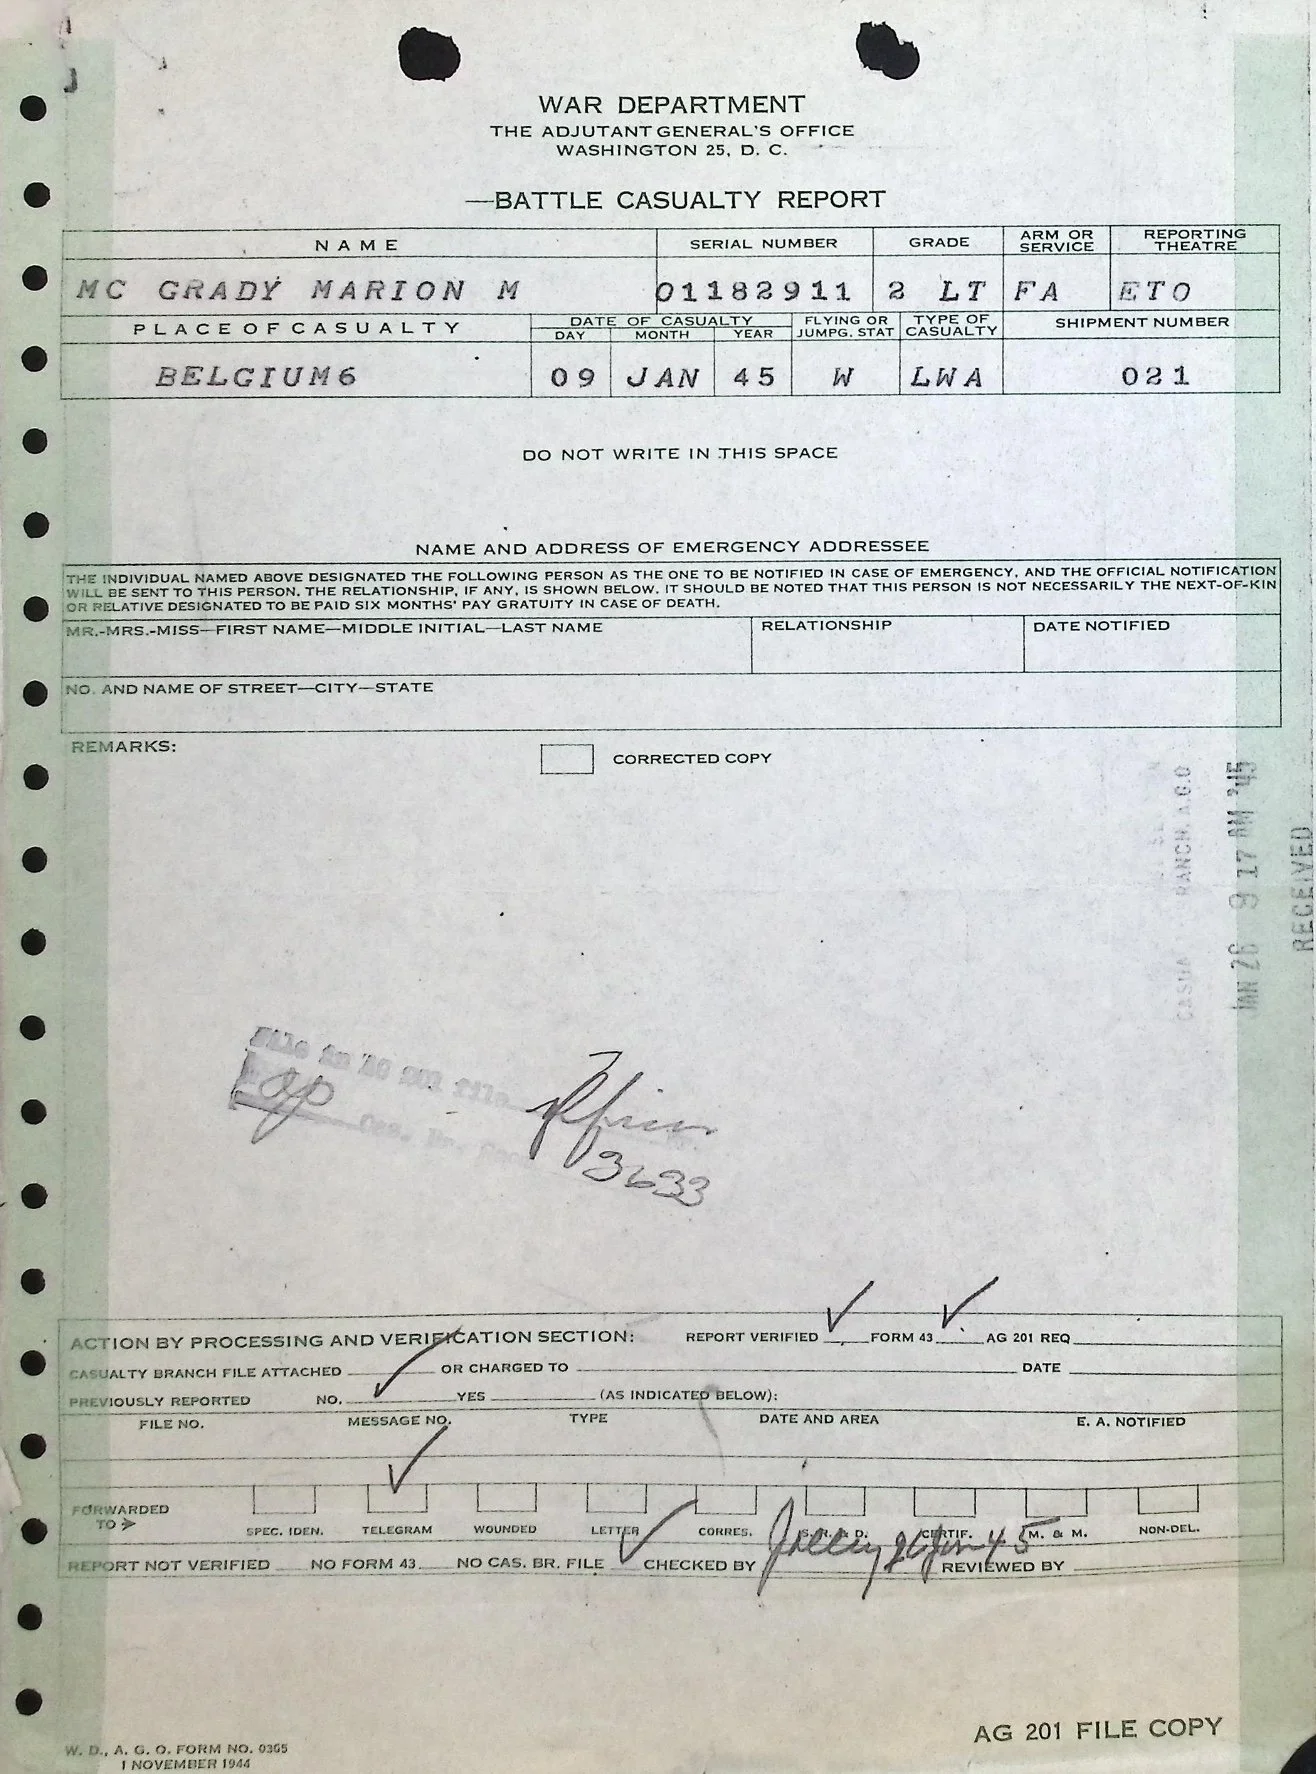 WAR DEPARTMENT
THE ADJUTANT GENERAL'S OFFICE
WASHINGTON 25, D. C.
—BATTLE CASUALTY REPORT
NAME SERIAL NUMBER GRADE ARM OR SERVICE REPORTING THEATRE
MC GRADY MARION M 01182911 2 LT FA ETO
PLACE OF CASUALTY DATE OF CASUALTY DAY MONTH YEAR FLYING OR JUMPG. STAT TYPE OF CASUALTY SHIPMENT NUMBER
BELGIUM6 09 JAN 45 W LWA 021
DO NOT WRITE IN THIS SPACE
NAME AND ADDRESS OF EMERGENCY ADDRESSEE
THE INDIVIDUAL NAMED ABOVE DESIGNATED THE FOLLOWING PERSON AS THE ONE TO BE NOTIFIED IN CASE OF EMERGENCY, AND THE OFFICIAL NOTIFICATION
WILL BE SENT TO THIS PERSON. THE RELATIONSHIP, IF ANY, IS SHOWN BELOW. IT SHOULD BE NOTED THAT THIS PERSON IS NOT NECESSARILY THE NEXT-OF-KIN
OR RELATIVE DESIGNATED TO BE PAID SIX MONTHS' PAY GRATUITY IN CASE OF DEATH.
MR.-MRS.-MISS—FIRST NAME—MIDDLE INITIAL—LAST NAME RELATIONSHIP DATE NOTIFIED
NO. AND NAME OF STREET—CITY—STATE
REMARKS: CORRECTED COPY
RANCH, A.G.O
JAN 26 9 17 AM '45
RECEIVED
File in AG 201 file
3633
ACTION BY PROCESSING AND VERIFICATION SECTION: REPORT VERIFIED ✓ FORM 43 ✓ AG 201 REQ
CASUALTY BRANCH FILE ATTACHED OR CHARGED TO DATE
PREVIOUSLY REPORTED NO. ✓ YES (AS INDICATED BELOW):
FILE NO. MESSAGE NO. TYPE DATE AND AREA E. A. NOTIFIED
FORWARDED TO ➢ SPEC. IDEN. ✓ TELEGRAM WOUNDED LETTER CORRES. S. R. & D. CERTIF. M. & M. NON-DEL.
REPORT NOT VERIFIED NO FORM 43 NO CAS. BR. FILE ✓ CHECKED BY 26 Jan 45 REVIEWED BY
AG 201 FILE COPY
W. D., A. G. O. FORM NO. 0365
1 NOVEMBER 1944